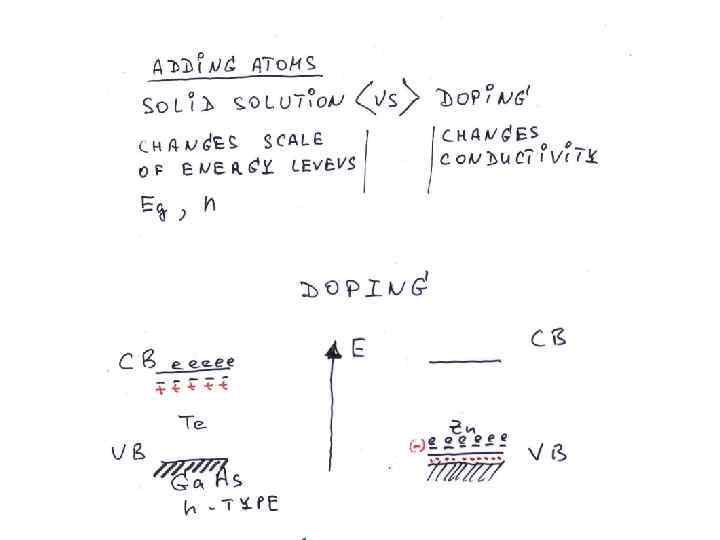 ADDING ATOMS
SOLID SOLUTION <VS> DOPING
CHANGES SCALE
OF ENERGY LEVEVS
CHANGES
CONDUCTIVITY
Eg, n
DOPING
CB eeeee
+++++
Te
VB
GaAs
n-TYPE
E
CB
Zn
(-) eeeeee
VB